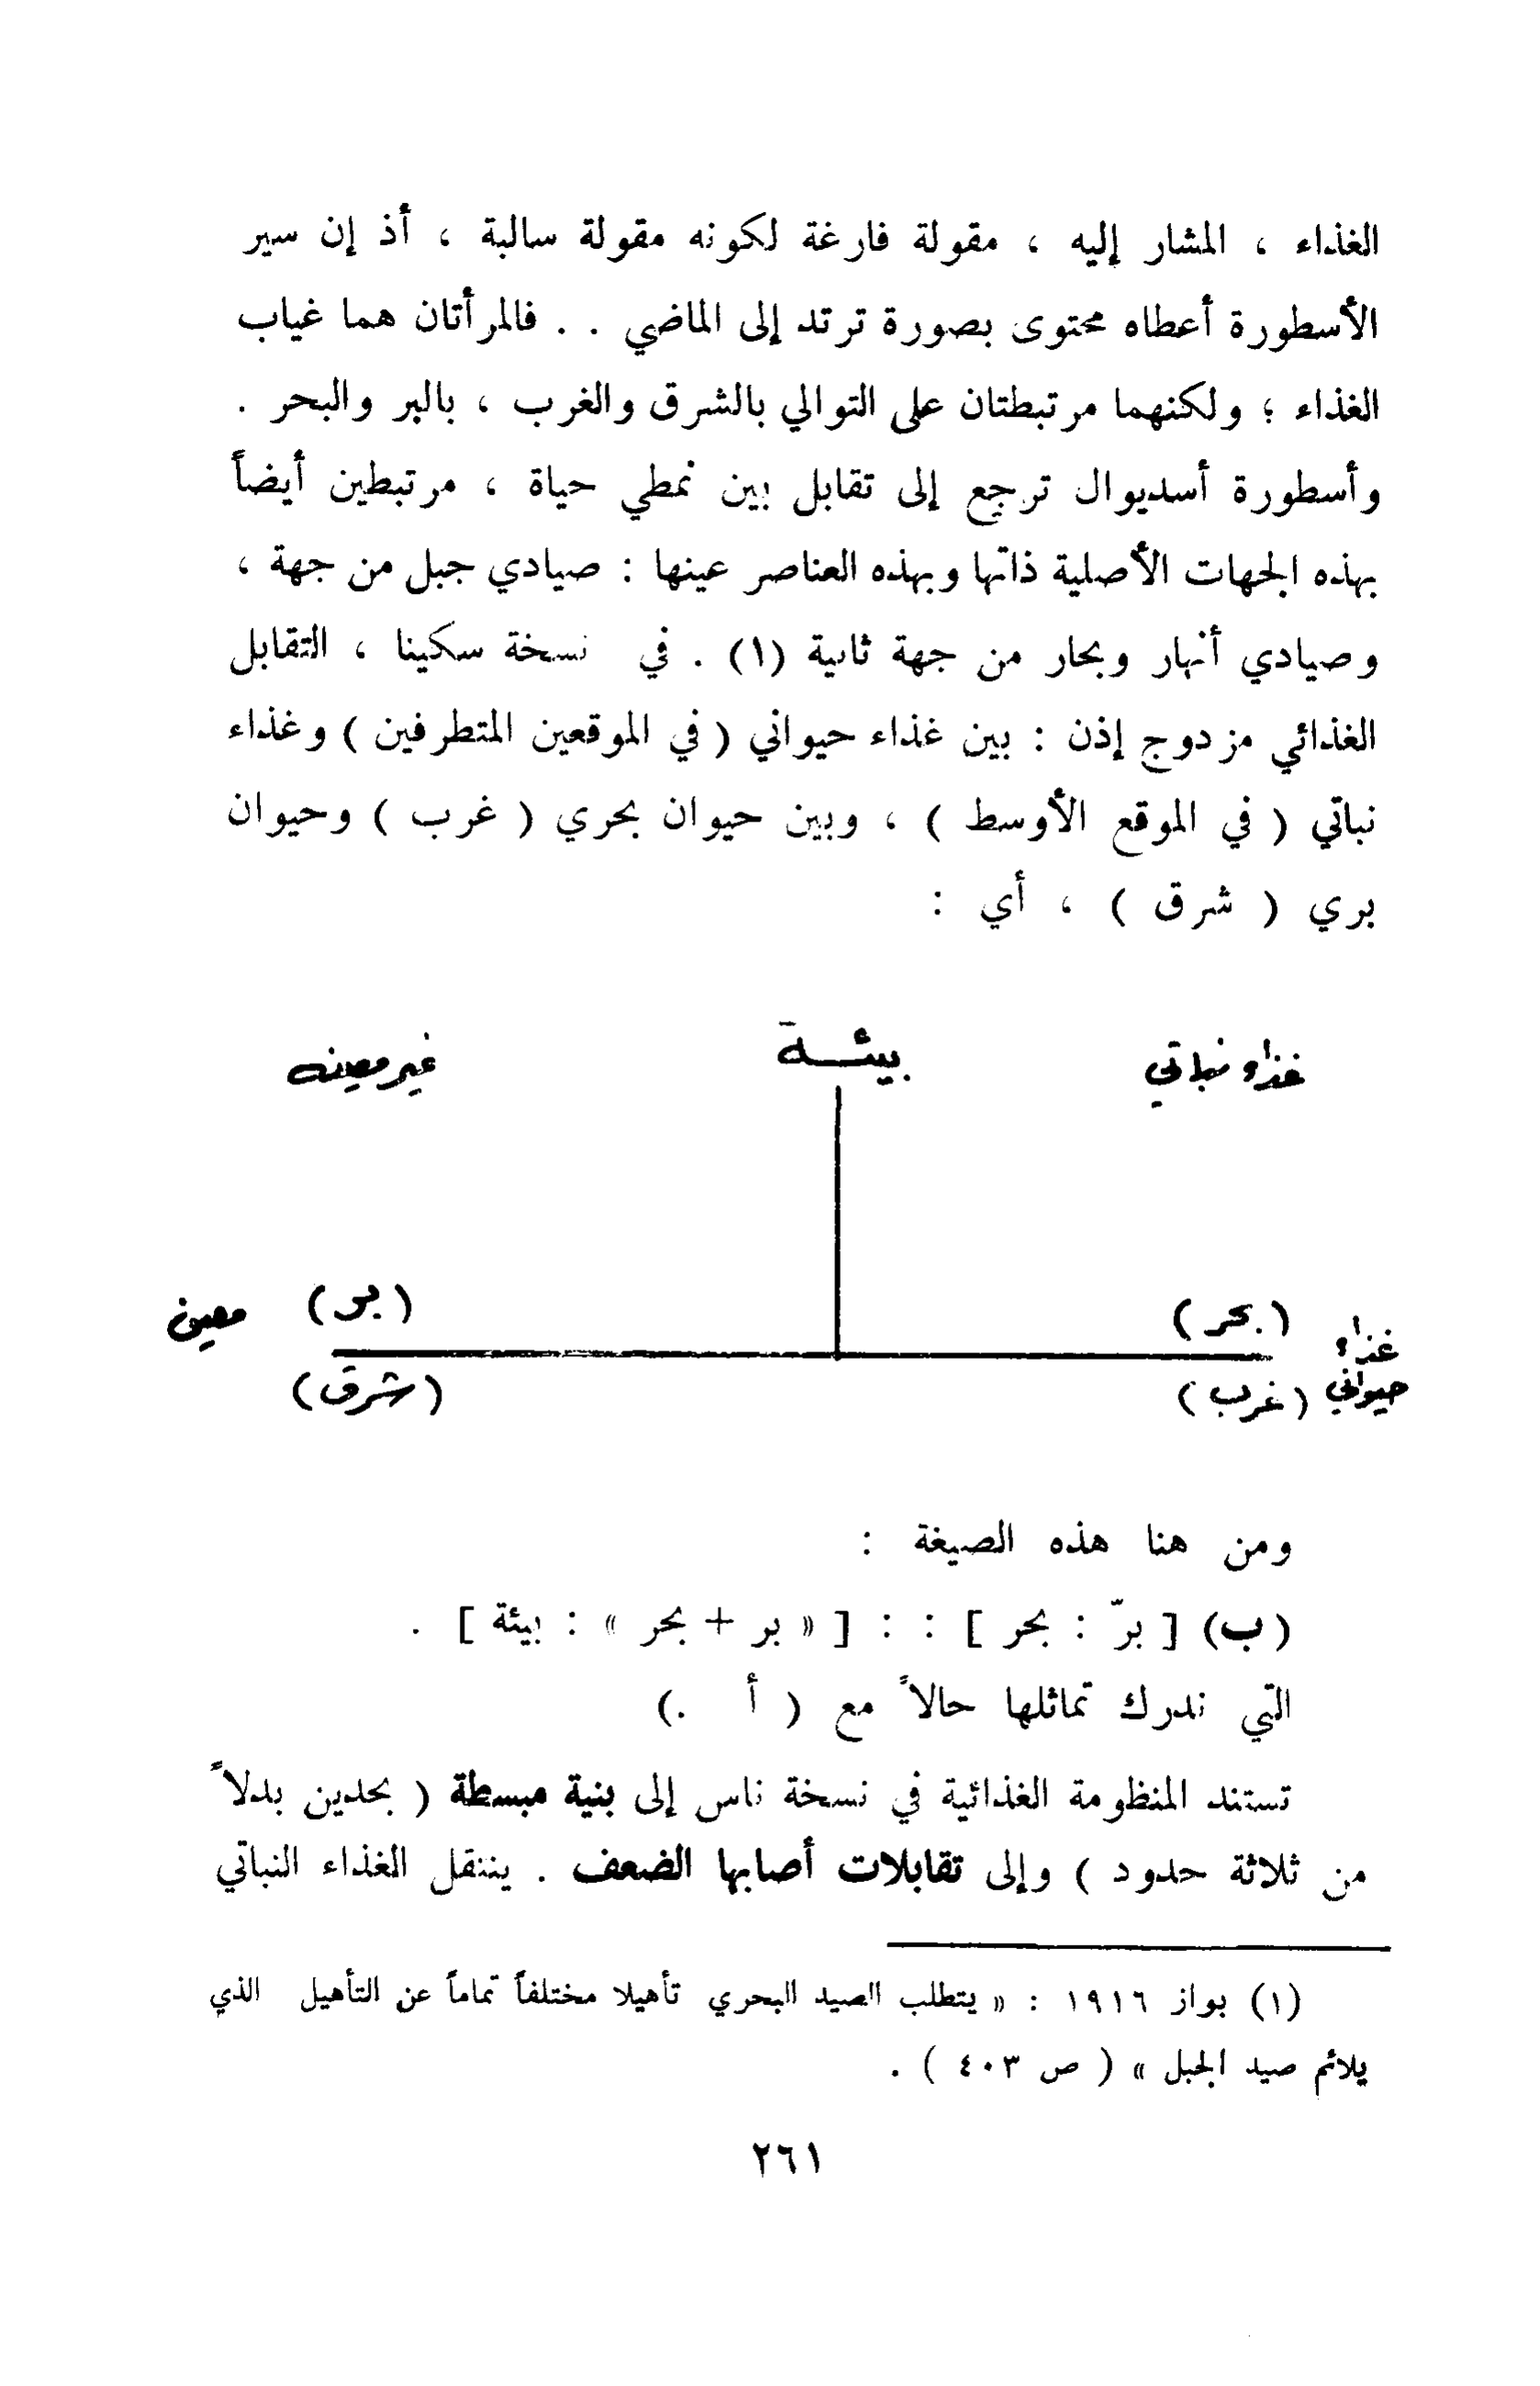 الغذاء ، المشار إليه ، مقولة فارغة لكونه مقولة سالبة ، أذ إن سير
الأسطورة أعطاه محتوى بصورة ترتد إلى الماضي . . فالمرأتان هما غياب
الغذاء ؛ ولكنهما مرتبطتان على التوالي بالشرق والغرب ، بالبر والبحر .
وأسطورة أسديوال ترجع إلى تقابل بين نمطي حياة ، مرتبطين أيضاً
بهذه الجهات الأصلية ذاتها وبهذه العناصر عينها : صيادي جبل من جهة ،
وصيادي أنهار وبحار من جهة ثانية (١) . في نسخة سكينا ، التقابل
الغذائي مزدوج إذن : بين غذاء حيواني ( في الموقعين المتطرفين ) وغذاء
نباتي ( في الموقع الأوسط ) ، وبين حيوان بحري ( غرب ) وحيوان
بري ( شرق ) ، أي :
غذاء نباتي بيئة غير معينه
غذاء حيواني (بحر) (بر) معين
(غرب) (شرق)
ومن هنا هذه الصيغة :
(ب) [ برّ : بحر ] : : [ « بر + بحر » : بيئة ] .
التي ندرك تماثلها حالاً مع ( أ .)
تستند المنظومة الغذائية في نسخة ناس إلى بنية مبسطة ( بحدين بدلاً
من ثلاثة حدود ) وإلى تقابلات أصابها الضعف . ينتقل الغذاء النباتي
(١) بواز ١٩١٦ : « يتطلب الصيد البحري تأهيلا مختلفاً تماماً عن التأهيل الذي
يلائم صيد الجبل » ( ص ٤٠٣ ) .
٢٦١